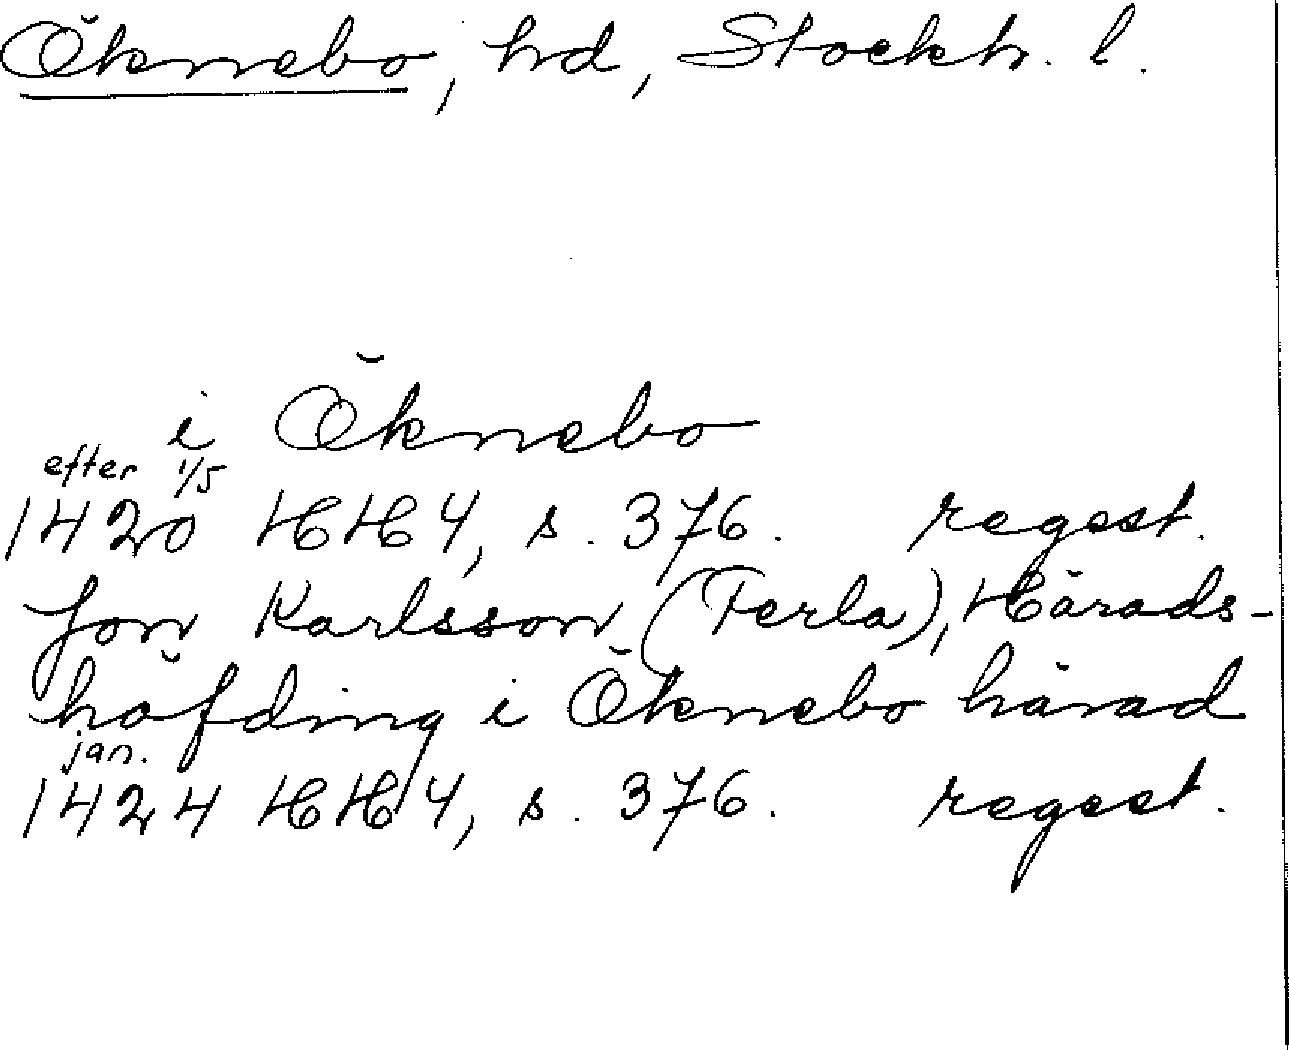 Öknebo, hd, Stockh. l.
i Öknebo
efter 1/5
1420 HH 4, s. 376. regest.
Jon Karlsson (Ferla), Härads-
höfding i Öknebo härad
jan.
1424 HH 4, s. 376. regest.